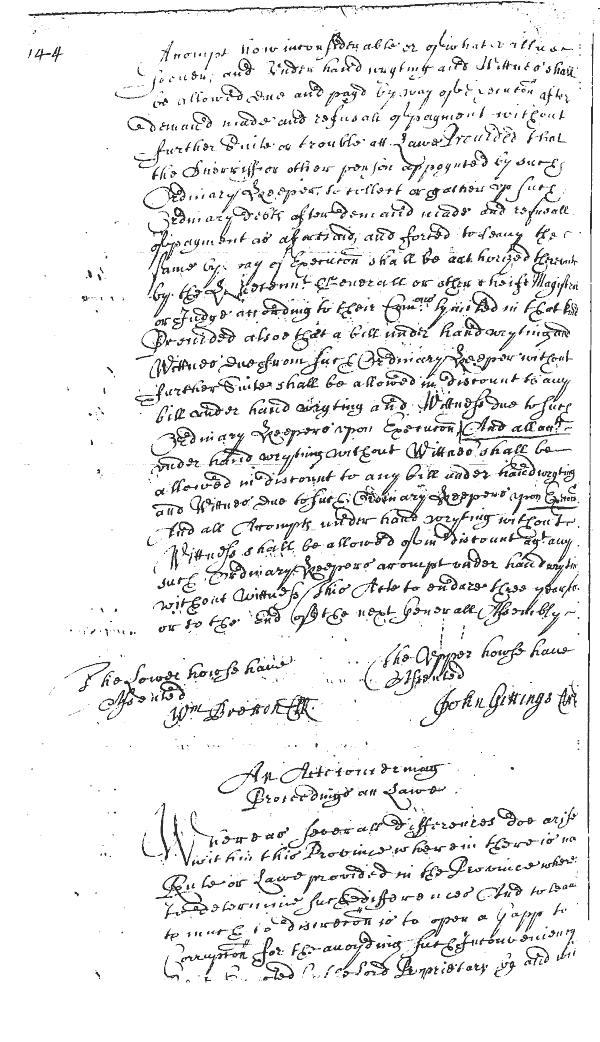 144
Accompt how inconsiderable or of what vallue
soever, and under hand wryting and Wittnes shall
be allowed due and payd by way of Execucon after
demand made and refusall of payment without
further Suite or trouble att Lawe Provided that
the Sherriff or other person appoynted by such
Ordinary Keeper, to collect or gather up such
Ordinary debts after demand made and refusall
of payment as aforesaid, and forced to leavy the
same by way of Execucon shall be authorized thereunto
by the Leivetennt Generall or other cheife Magistrate
or Judge according to their Comons lymited in that
Provided alsoe that a bill under hand wryting and
Wittnes due from such Ordinary Keeper without
further Suite shall be allowed in discount to any
bill under hand wryting and Wittnes due to such
Ordinary Keepers upon Execucon And all
under hand wryting without Wittnes shall be
allowed in discount to any bill under hand wryting
and Wittnes due to such Ordinary Keepers upon
And all Accompts under hand wryting without
Wittness shall be allowed of in discount agt any
such Ordinary Keepers accompt under hand wryting
without Wittness, this Acte to endure three yeares
or to the end of the next Generall Assembly
The Lower howse have
Assented
Wm Bretton Clk
the Upper howse have
Assented
John Gittings Clk
An Acte concerning
Proceedings att Lawe
Whereas severall differences doe arise
within this Province wherein there is no
Rule or Lawe provided in the Province where
to determine such differences And to leave
to much to discrecon is to open a gapp to
Corrupcon for the avoyding such Inconveniency
Lord Proprietary by and wth